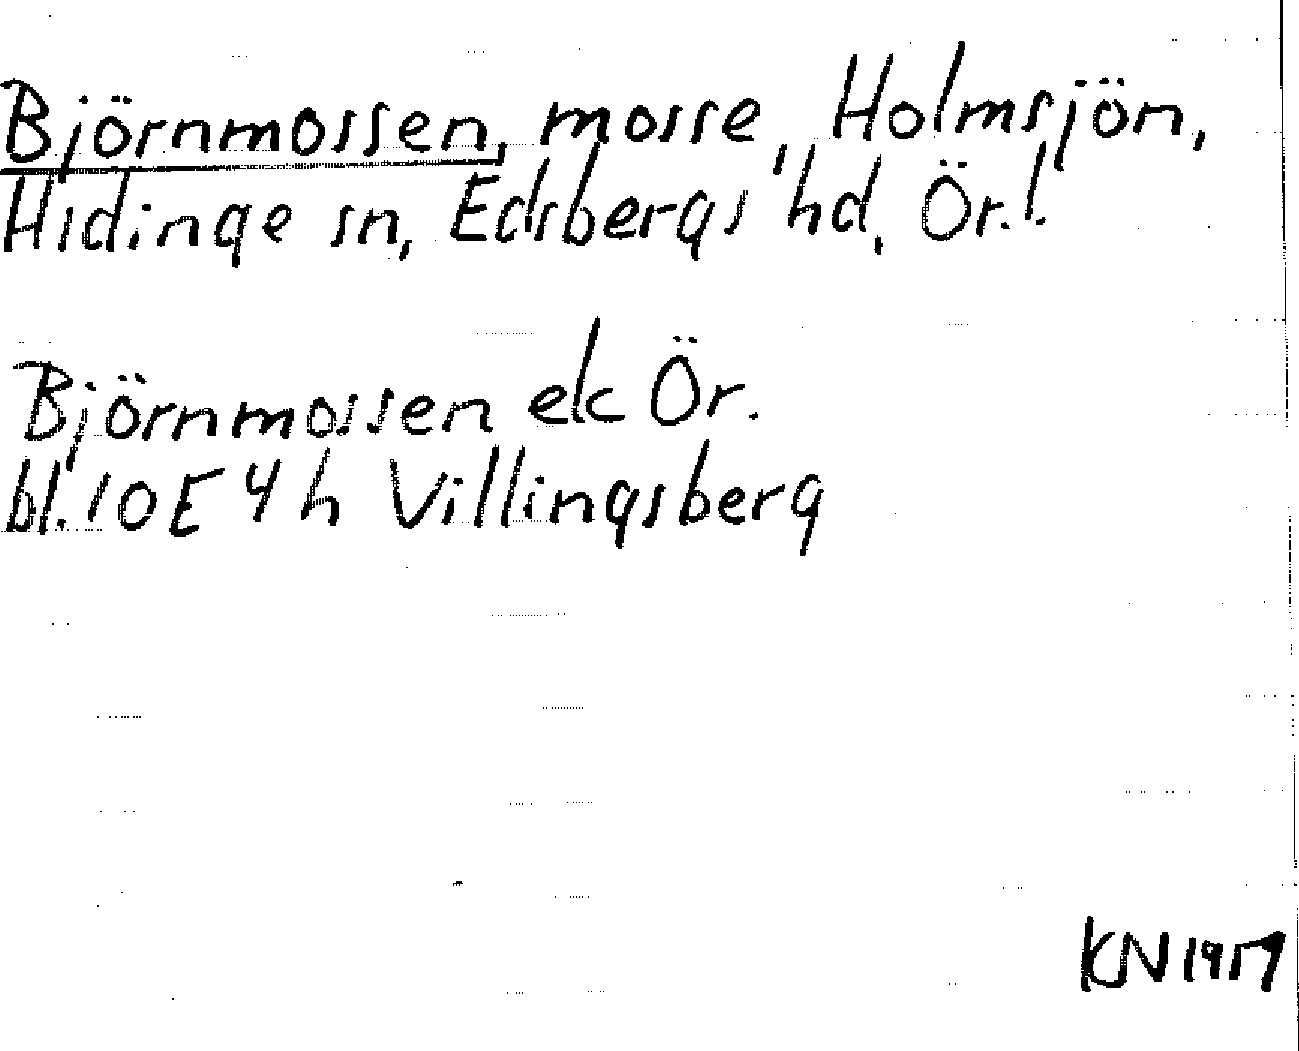 Björnmossen, mosse, Holmsjön,
Hidinge sn, Edsbergs hd, Ör.l.
Björnmossen ek Ör.
bl. 10E 4h Villingsberg
KN